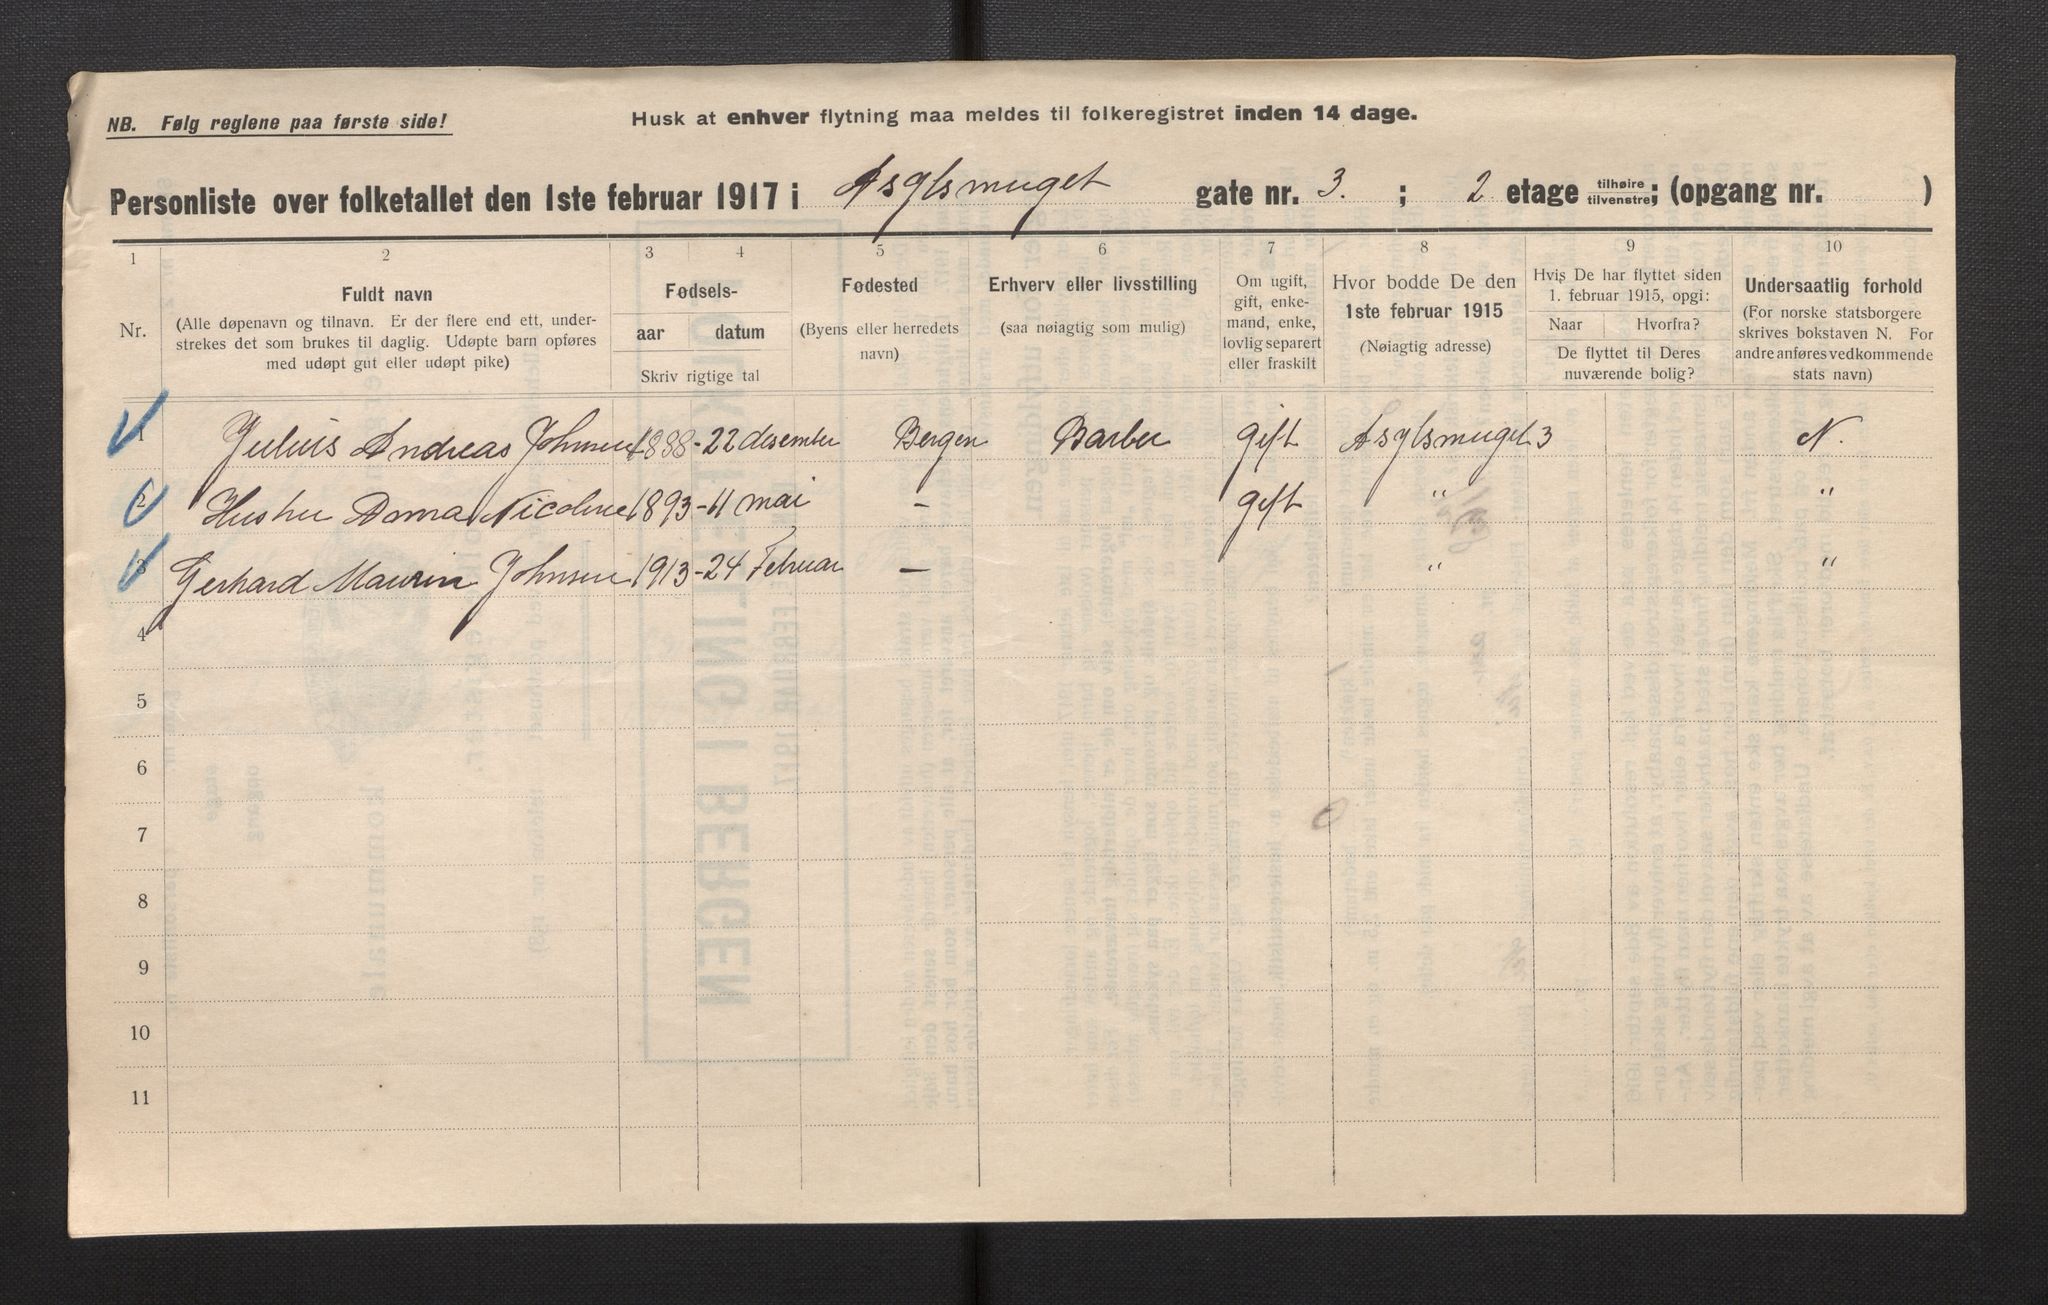 NB. Følg reglene paa første side!
Husk at enhver flytning maa meldes til folkeregistret inden 14 dage.
Personliste over folketallet den 1ste februar 1917 i Asylsmuget gate nr. 3. ; 2 etage tilhøire tilvenstre; (opgang nr. )
1 2 3 4 5 6 7 8 9 10
Nr.
Fuldt navn
(Alle døpenavn og tilnavn. Er der flere end ett, under-
strekes det som brukes til daglig. Udøpte barn opføres
med udøpt gut eller udøpt pike)
Fødsels-
aar datum
Skriv rigtige tal
Fødested
(Byens eller herredets
navn)
Erhverv eller livsstilling
(saa nøiagtig som mulig)
Om ugift,
gift, enke-
mand, enke,
lovlig separert
eller fraskilt
Hvor bodde De den
1ste februar 1915
(Nøiagtig adresse)
Hvis De har flyttet siden
1. februar 1915, opgi:
Naar Hvorfra?
De flyttet til Deres
nuværende bolig?
Undersaatlig forhold
(For norske statsborgere
skrives bokstaven N. For
andre anføres vedkommende
stats navn)
1 Julius Andreas Johnsen 1888 - 22 desember Bergen Barber gift Asylsmuget 3 N.
2 Hustru Nicoline 1893 - 11 mai — gift " "
3 Gerhard Johnsen 1913 - 24 Februar — " "
4
5
6
7
8
9
10
11